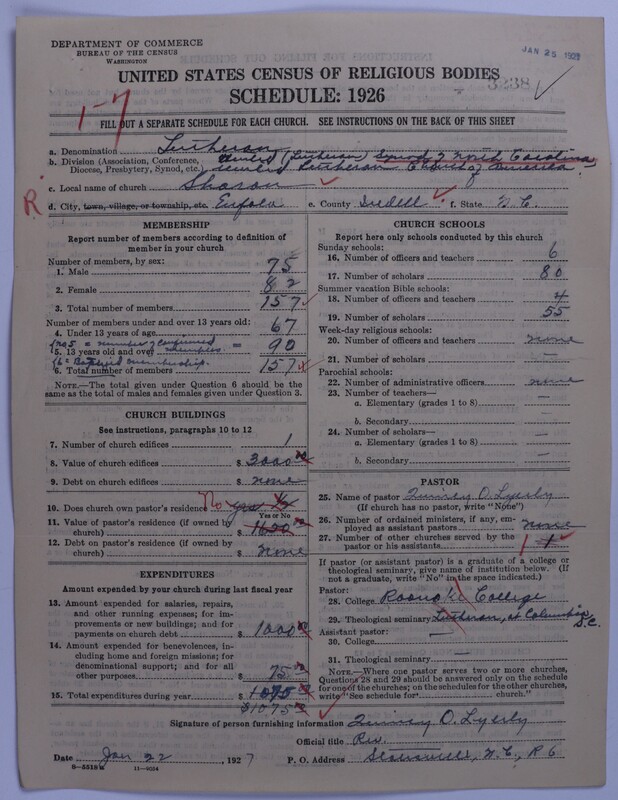 DEPARTMENT OF COMMERCE
BUREAU OF THE CENSUS
WASHINGTON
JAN 25
UNITED STATES CENSUS OF RELIGIOUS BODIES
3238
SCHEDULE: 1926
1-7
FILL OUT A SEPARATE SCHEDULE FOR EACH CHURCH. SEE INSTRUCTIONS ON THE BACK OF THIS SHEET
a. Denomination Lutheran
b. Division (Association, Conference, United (Lutheran) Synod of North Carolina
Diocese, Presbytery, Synod, etc.) United Lutheran Church of America
c. Local name of church Sharon
R.
d. City, town, village, or township, etc. Eufola e. County Iredell f. State N. C.
MEMBERSHIP
Report number of members according to definition of
member in your church
Number of members, by sex:
1. Male 75
2. Female 82
3. Total number of members 157
Number of members under and over 13 years old:
4. Under 13 years of age 67
(no 5 = number of confirmed
5. 13 years old and over members. = 90
(6 = Baptized membership.
6. Total number of members 157
NOTE.—The total given under Question 6 should be
same as the total of males and females given under Question 3.
CHURCH BUILDINGS
See instructions, paragraphs 10 to 12
7. Number of church edifices 1
8. Value of church edifices $ 3000
9. Debt on church edifices $ none
10. Does church own pastor's residence No yes 1/2
Yes or No
11. Value of pastor's residence (if owned by
church) $ 1650
12. Debt on pastor's residence (if owned by
church) $ none
EXPENDITURES
Amount expended by your church during last fiscal year
13. Amount expended for salaries, repairs,
and other running expenses; for im-
provements or new buildings; and for
payments on church debt $ 1000
14. Amount expended for benevolences, in-
cluding home and foreign missions; for
denominational support; and for all
other purposes $ 75
15. Total expenditures during year $ 1075
$1075
CHURCH SCHOOLS
Report here only schools conducted by this church
Sunday schools:
16. Number of officers and teachers 6
17. Number of scholars 80
Summer vacation Bible schools:
18. Number of officers and teachers 4
19. Number of scholars 55
Week-day religious schools:
20. Number of officers and teachers none
21. Number of scholars —
Parochial schools:
22. Number of administrative officers none
23. Number of teachers—
a. Elementary (grades 1 to 8) —
b. Secondary —
24. Number of scholars—
a. Elementary (grades 1 to 8) —
b. Secondary —
PASTOR
25. Name of pastor Quincy O. Lyerly
(If church has no pastor, write "None")
26. Number of ordained ministers, if any, em-
ployed as assistant pastors none
27. Number of other churches served by the
pastor or his assistants 1
If pastor (or assistant pastor) is a graduate of a college or
theological seminary, give name of institution below. (If
not a graduate, write "No" in the space indicated.)
Pastor:
28. College Roanoke College
29. Theological seminary Lutheran, at Columbia
S.C.
Assistant pastor:
30. College —
31. Theological seminary —
NOTE.—Where one pastor serves two or more churches,
Questions 28 and 29 should be answered only on the schedule
for one of the churches; on the schedules for the other churches,
write "See schedule for church."
Signature of person furnishing information Quincy O. Lyerly
Official title Rev.
Date Jan 22, 1927 P. O. Address Statesville, N. C., R 6
11-9554